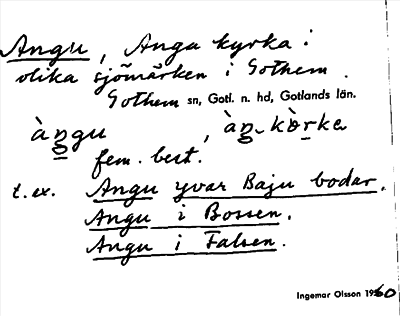 Angu, Anga kyrka i
olika sjömärken i Gothem.
Gothem sn, Gotl. n. hd, Gotlands län.
àŋgu, àŋ-kò̱rke
fem. best.
t. ex. Angu yvar Baju bodar.
Angu i Bossen.
Angu i Falsen.
Ingemar Olsson 1960